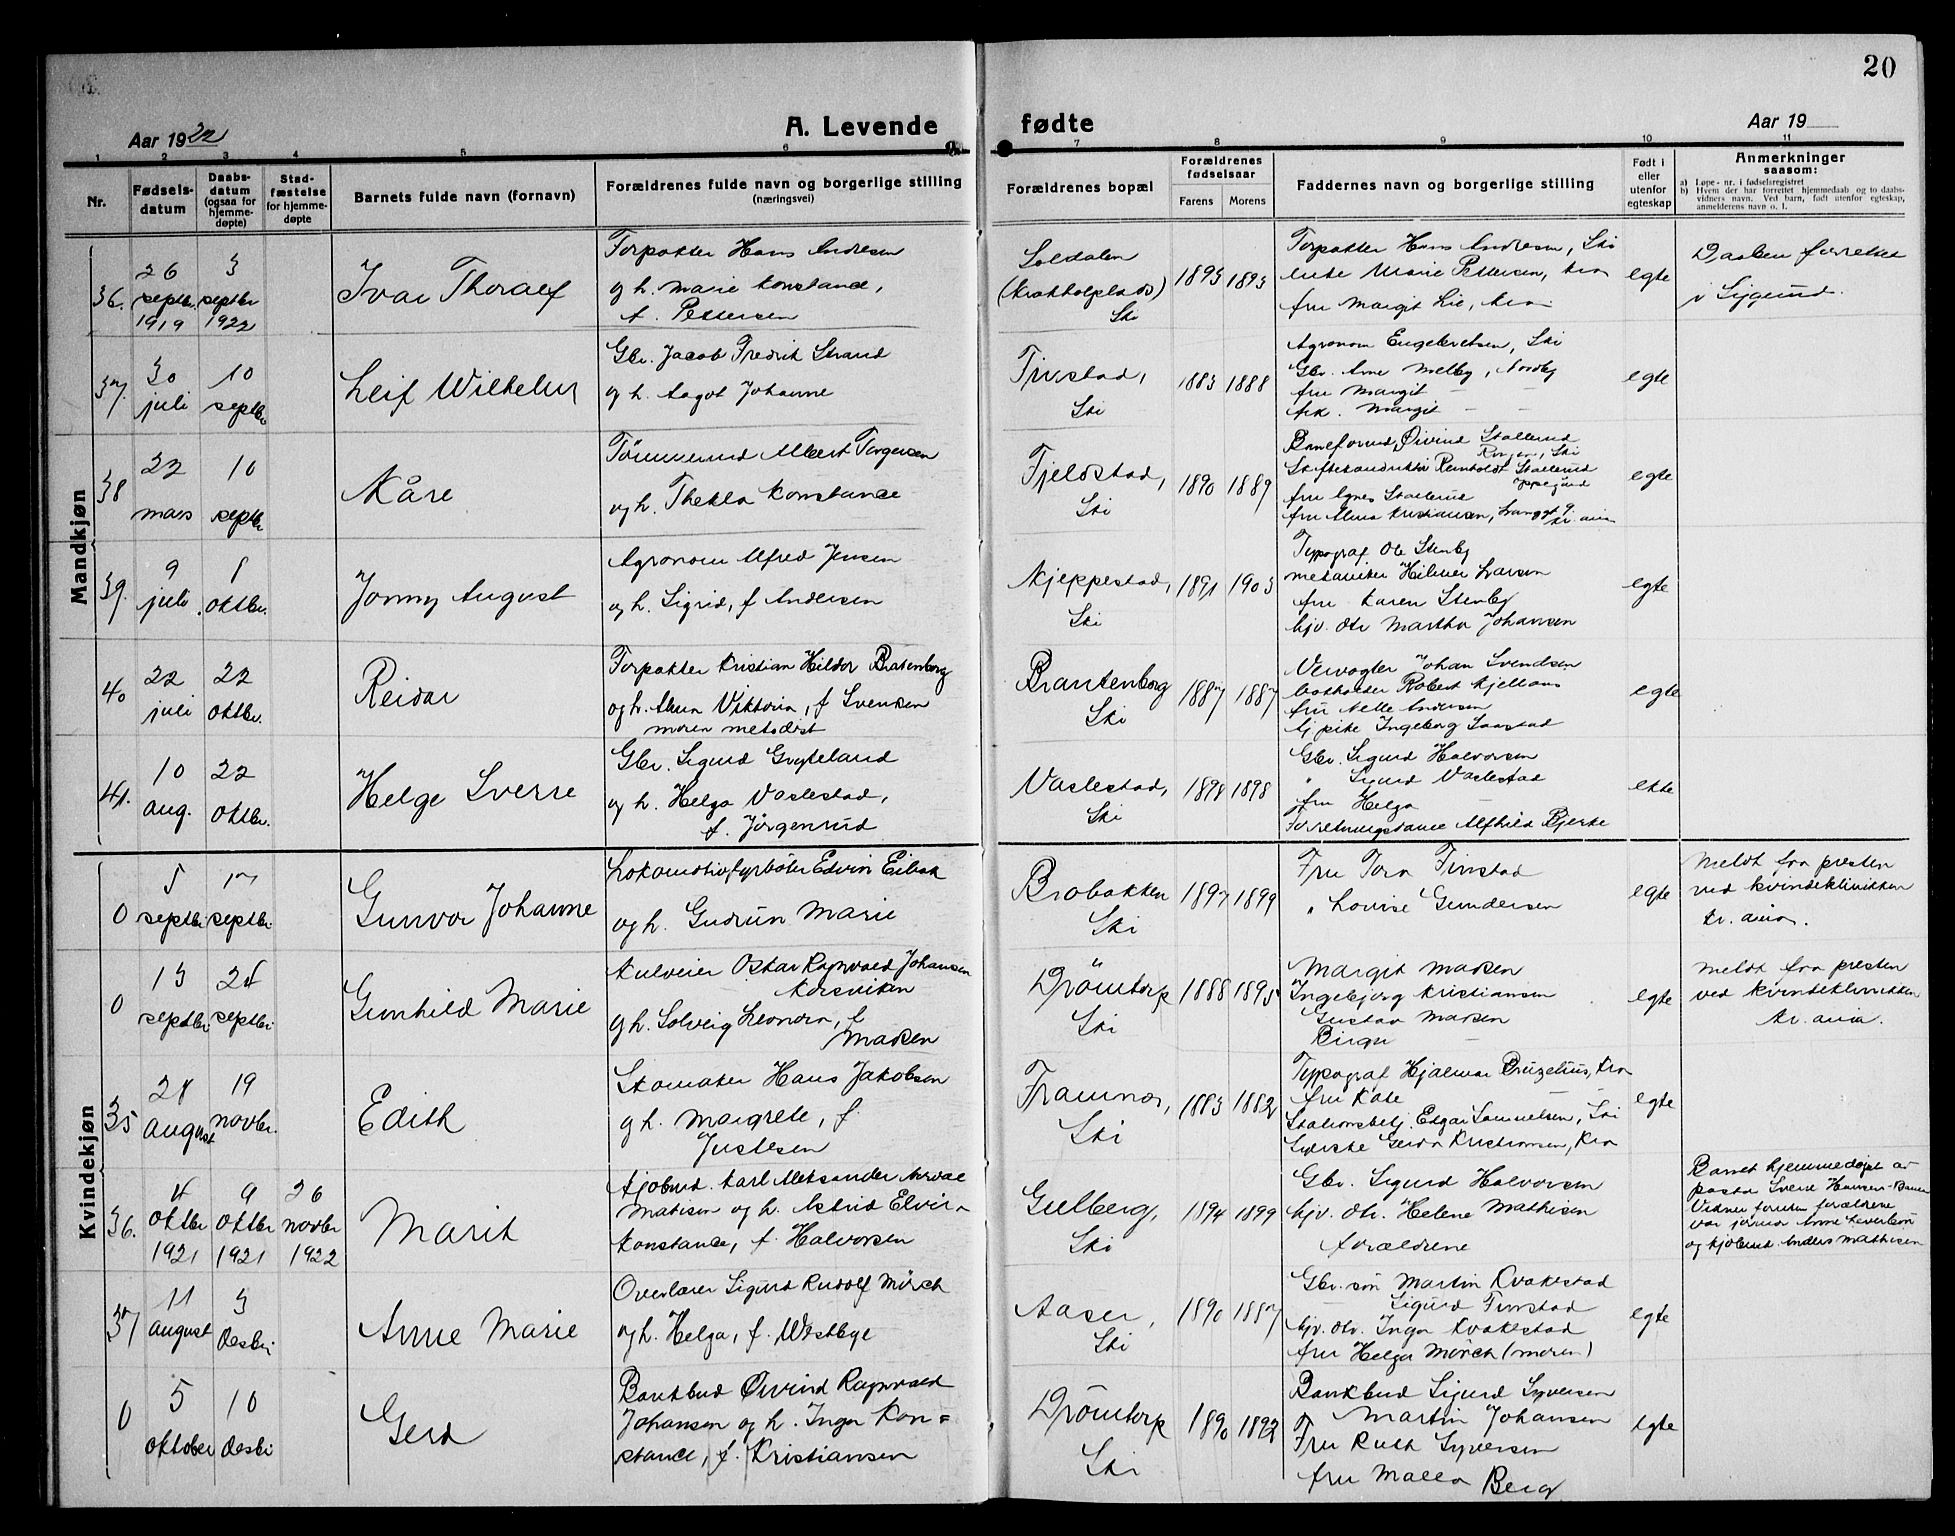 20
Aar 1922
A. Levende
fødte
Aar 19
1 2 3 4 5 6 7 8 9 10 11
Nr.
Fødsels-
datum
Daabs-
datum
(ogsaa for
hjemme-
døpte)
Stad-
fæstelse
for hjemme-
døpte
Barnets fulde navn (fornavn)
Forældrenes fulde navn og borgerlige stilling
(næringsvei)
Forældrenes bopæl
Forældrenes
fødselsaar
Farens
Morens
Faddernes navn og borgerlige stilling
Født i
eller
utenfor
egteskap
Anmerkninger
saasom:
a) Løpe-nr. i fødselsregistret
b) Hvem der har forrettet hjemmedaab og to daabs-
vidners navn. Ved barn, født utenfor egteskap,
anmelderens navn o. l.
Mandkjøn
36.
26
septbr.
1919
3
septbr
1922
Ivar Thoralf
Forpakter Hans Andresen
og h. Marie Konstance,
f. Pettersen
Soldalen
(Krokholplads)
Ski
1893 1893
Forpakter Hans Andresen, Ski
Marie Pettersen, Kra
fru Margit Lie, Kra
egte
Daaben forrettet
i Siggerud.
37.
30
juli
10
septbr
Leif Wilhelm
Gbr. Jacob Fredrik Strand
og h. Aagot Johanne
Finstad,
Ski
1883 1888
Agronom Engebretsen, Ski
Gbr. Arne Melby, Nordby
fru Margit —
frk. Margit — —
egte
38
22
mars
10
septbr
Kåre
Tömmermd Albert Torgersen
og h. Thekla Konstance
Fjeldstad,
Ski
1890 1889
Baneformd. Øivind Stallerud
Ski
Skiftekonduktør Reinholdt Stallerud
Oppegård
fru Agnes Stallerud
fru Alma Kristiansen,
egte
39.
9
juli
8
oktbr.
Jonny August
Agronom Alfred Jensen
og h. Sigrid, f Andersen
Kjeppestad,
Ski
1891 1903
Typograf Ole Stenby
mekaniker Hilmer Larsen
fru Karen Stenby
hjv. dtr Martha Johansen
egte
40
22
juli
22
oktbr.
Reidar
Forpakter Kristian Hildor Bratenberg
og h. Anna Viktoria, f Svensen
moren metodist
Brantenborg
Ski
1887 1887
Veivogter Johan Svendsen
Robert Kjellaas
fru Nelle Andersen
Ingeborg Saastad
egte
41.
10
aug.
22
oktbr.
Helge Sverre
Gbr. Sigurd Gryteland
og h. Helga Vaslestad,
f. Jörgenrud
Vaslestad,
Ski
1898 1898
Gbr. Sigurd Halvorsen
" Sigurd Vaslestad
fru Helga —
Forretningsdame Alfhild Bjerke
ekte
Kvindekjøn
0
5
septbr
17
septbr.
Gunvor Johanne
Lokomotivfyrbøter Edvin Eibak
og h. Gudrun Marie
Brobakken
Ski
1897 1899
Fru Tora Finstad
" Lovise Gundersen
egte
Meldt fra presten
ved kvindeklinikken
Kr.ania.
0
13
septbr.
24
septbr.
Gunhild Marie
Kulveier Oskar Ragnvald Johansen
Korsviken
og h. Solveig Leonora, f
Madsen
Drömtorp
Ski
1888 1895
Margit Madsen
Ingebjørg Kristiansen
Gustav Madsen
Birger —
egte
Meldt fra presten
ved kvindeklinikken
Kr.ania.
35
28
august
19
novbr.
Edith
Skomaker Hans Jakobsen
og h. Margrete, f
Justesen
Framnes,
Ski
1883 1882
Typograf Hjalmar Bruzelius, Kra
fru Kate —
Stationsbetj. Edgar Samuelsen, Ski
Syerske Gerda Kristiansen, Kra
egte
36.
4
oktbr
1921
9
oktbr
1921
26
novbr
1922
Marit
Karl Aleksander
Matisen og h. Astrid Elvira
Konstance, f. Halvorsen
Gulberg,
Ski
1894 1899
Gbr. Sigurd Halvorsen
hjv. dtr. Helene Mathisen
forældrene
Barnet hjemmedøpt av
pastor Svend Hansen-Bauer
Vidner foruten forældrene
var
og kjøbmd. Anders Mathisen
37
11
august
3
desbr
Anne Marie
Overlærer Sigurd Rudolf Mörch
og h. Helga, f. Westbye
Aaser,
Ski
1890 1887
Gbr. sön Martin Kvakestad
— Sigurd Finstad
hjv. dtr. Inga Kvakestad
fru Helga Mörch (moren)
egte
0
5
oktober
10
desbr
Gerd
Bankbud Øivind Ragnvald
Johansen og h. Inga Kon=
stance, f. Kristiansen
Drömtorp
Ski
1890 1892
Bankbud Sigurd Syversen
Martin Johansen
Fru Ruth Syversen
fru Malla Berg
egte